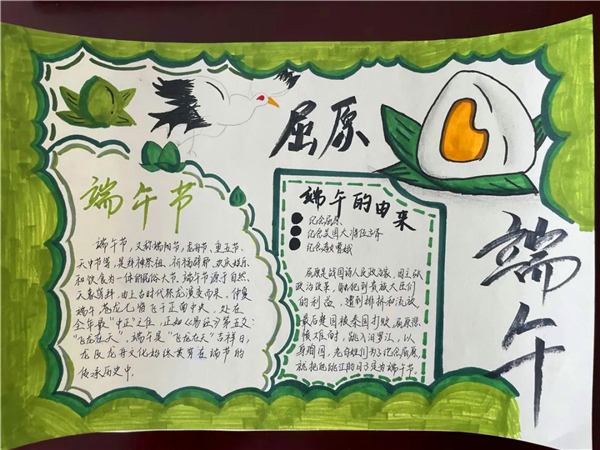 屈原
端午
端午节
端午节，又称端阳节，龙舟节、重五节、
天中节等，是集拜神祭祖、祈福辟邪、欢庆娱乐
和饮食为一体的民俗大节。端午节源于自然
天象崇拜，由上古时代祭龙演变而来，仲夏
端午，苍龙七宿飞于正南中天，处在
全年最“中正”之位，正如《易经》第五爻：
“飞龙在天”。端午是“飞龙在天”吉祥日，
龙及龙舟文化始终贯穿在端节的
传承历史中。
端午的由来
纪念屈原
纪念吴国大将伍子胥
纪念孝女曹娥
屈原是战国诗人及政治家，因主张
政治改革，
的利益，遭到排挤和流放
最后楚国被秦国打败，屈原悲
愤难伍时，跳入汨罗江，以
身殉国，老百姓们为了纪念屈原，
就把他跳江的日子定为端午节。